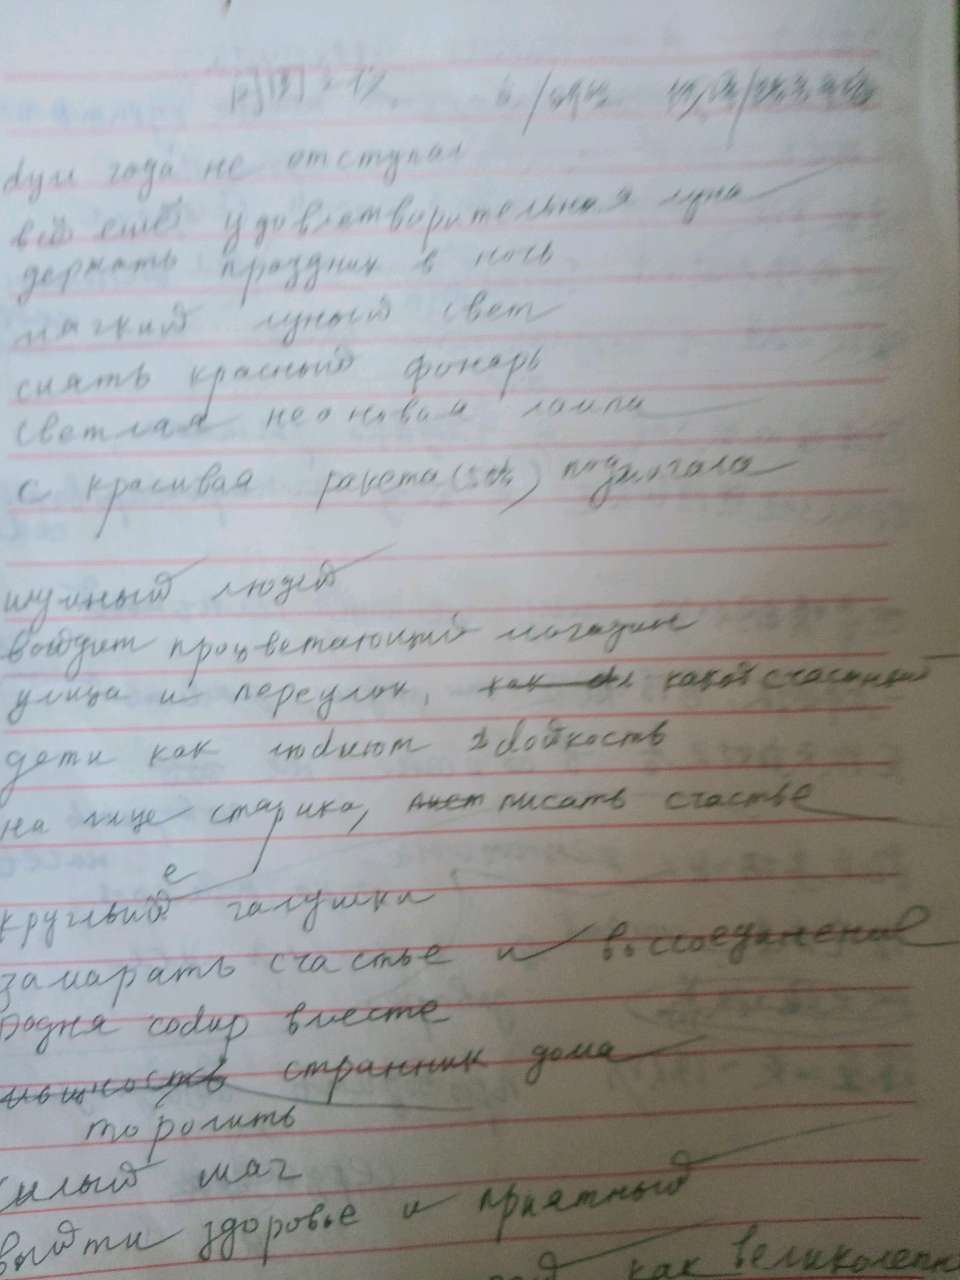 года не отступал
всё ещё удовлетворительная луна
держать праздник в ночь
мягкий луный свет
сиять красный фонарь
светлая неоновая лампы
с красивая ракета подмогала
шумный людей
войдит процветающий магазин
улица и переулок, какой счастливый
дети как любиют бойкость
на лице старика, писать счастье
круглые галушки
замарать счастье и воссоединение
Родня собир вместе
странник дома
торопить
милый шаг
выйти здоровье и приятный
как великолепн